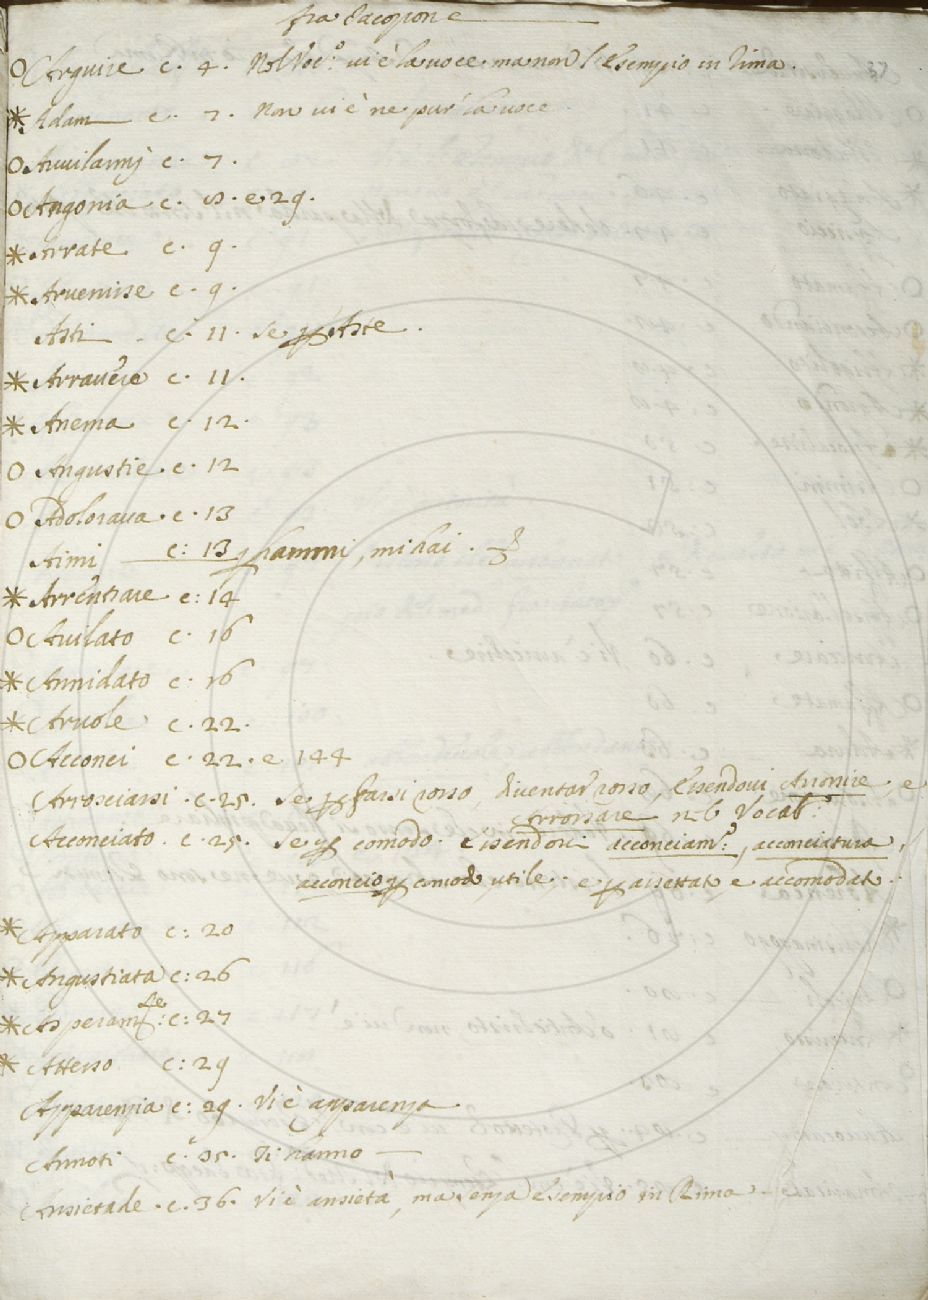 fra Jacopone
O Arguire c. 4. Nel Voc.° vi è la voce ma non l'esempio in Rima. 37
* Adam c. 7. Non vi è ne pur la voce
O Auuilarmj c. 7.
O Angonia c. 8. e 29.
* Arrate c. 9.
* Aruenisse c. 9.
Asti c. 11. se p Aste.
* Arrauere c. 11.
* Anema c. 12.
O Angustie c. 12
O Adoloraua c. 13
Aimi c: 13 p hammi, mi hai.
* Arrentrare c: 14
O Auilato c. 16
* Annidato c. 16
* Aruole c. 22.
O Acconci c. 22. e 144
Arrosciarsi c. 25. se p farsi rosso, diventar rosso, essendovi Arrossire, e
Arrossare nel Vocab.°
Acconciato c. 25. se p comodo. essendovi acconciam.°, acconciatura,
acconcio p comodo, utile. e p assettat e accomodat.
* Apparato c: 20
* Angustiata c: 26
* Asperam.te c: 27
* Atterso c: 29
Apparenzia c: 29. Vi è apparenza
Annoti c. 35. ti hanno
Ansietade c. 36. Vi è ansietà, ma senza esempio in Rima